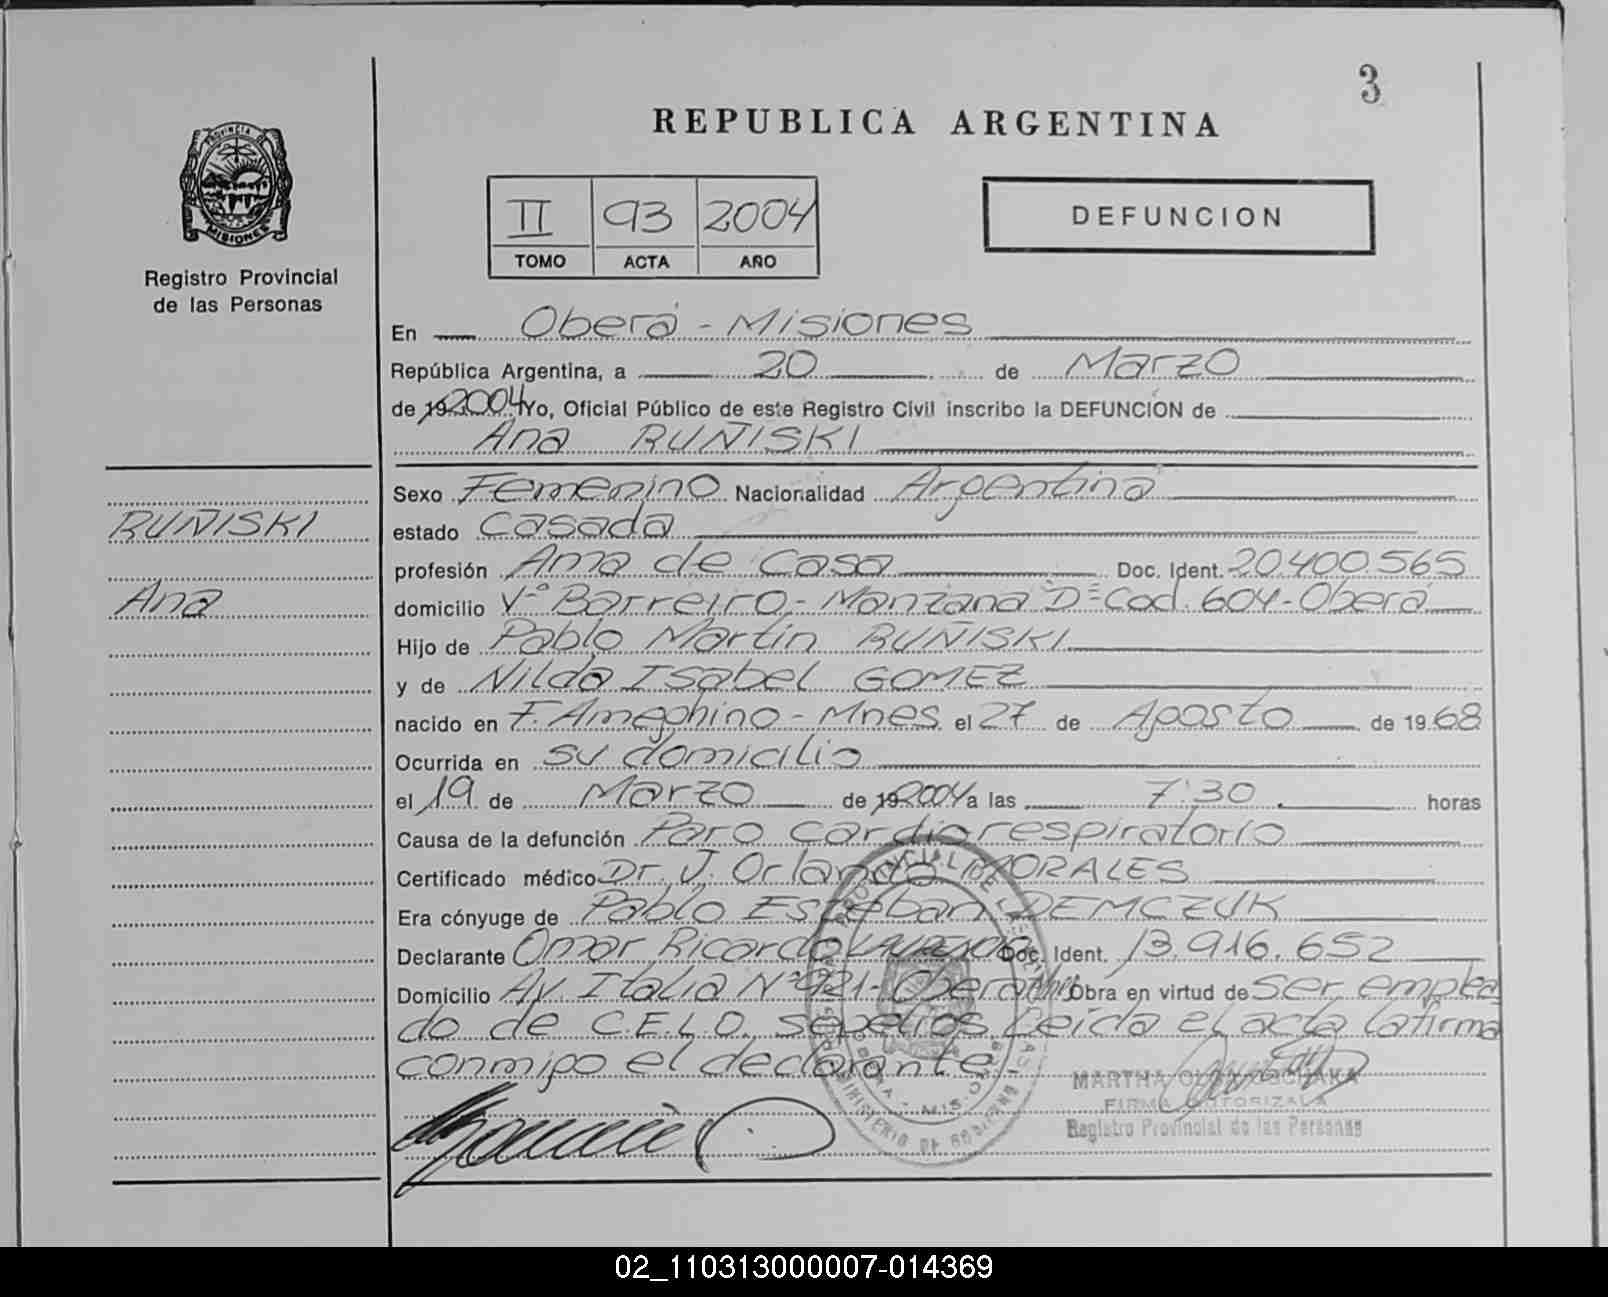 3
REPUBLICA ARGENTINA
PROVINCIA DE
MISIONES
Registro Provincial
de las Personas
II 93 2004
TOMO ACTA AÑO
DEFUNCION
En Oberá - Misiones
República Argentina, a 20 de Marzo
de 19 2004 Yo, Oficial Público de este Registro Civil inscribo la DEFUNCIÓN de
Ana RUÑISKI
Sexo Femenino Nacionalidad Argentina
RUÑISKI
estado Casada
profesión Ama de Casa Doc. Ident. 20.400.565
Ana
domicilio Vº Barreiro - Manzana "D" Cod. 604 - Oberá
Hijo de Pablo Martín RUÑISKI
y de Nilda Isabel GOMEZ
nacido en F. Ameghino - Mnes el 27 de Agosto de 1968
Ocurrida en su domicilio
el 19 de Marzo de 19 2004 a las 7:30 horas
Causa de la defunción Paro cardiorespiratorio
Certificado médico Dr. J. Orlando MORALES
Era cónyuge de Pablo Esteban DEMCZUK
Declarante Omar Ricardo Doc. Ident. 13.916.652
Domicilio Av. Italia Nº 921 - Oberá Mnes Obra en virtud de ser emplea
do de C.E.L.O. sepelios Leída el acta la firma
conmigo el declarante
MARTHA OLGA
FIRMA AUTORIZADA
Registro Provincial de las Personas
02_110313000007-014369